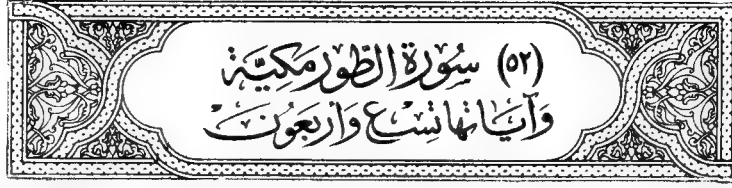 (٥٢) سُورَة الطّور مَكيَّة
وَآيَاتها تِسْع وَأربَعُونَ